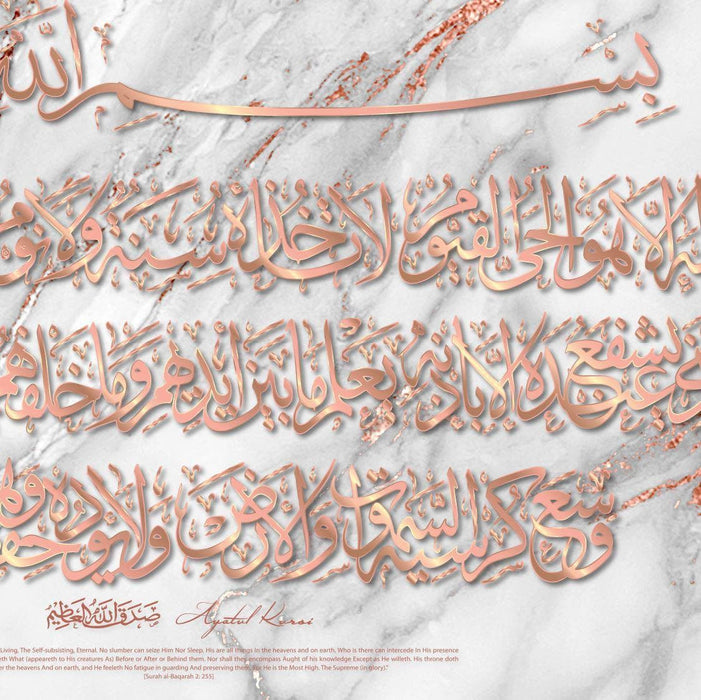 بِسْمِ اللّٰه
إِلَّا هُوَ الْحَيُّ الْقَيُّومُ لَا تَأْخُذُهُ سِنَةٌ وَلَا نَوْمٌ
يَشْفَعُ عِنْدَهُ إِلَّا بِإِذْنِهِ يَعْلَمُ مَا بَيْنَ أَيْدِيهِمْ وَمَا خَلْفَهُمْ
وَسِعَ كُرْسِيُّهُ السَّمٰوَاتِ وَالْأَرْضَ وَلَا يَئُودُهُ
صَدَقَ اللّٰهُ الْعَظِيْمُ Ayatul Kursi
Living, The Self-subsisting, Eternal. No slumber can seize Him Nor Sleep. His are all things in the heavens and on earth. Who is there can intercede In His presence
What (appeareth to His creatures As) Before or After or Behind them. Nor shall they encompass Aught of his knowledge Except as He willeth. His throne doth
the heavens And on earth, and He feeleth No fatigue in guarding And preserving them, For He is the Most High. The Supreme (in glory)."
[Surah al-Baqarah 2: 255]